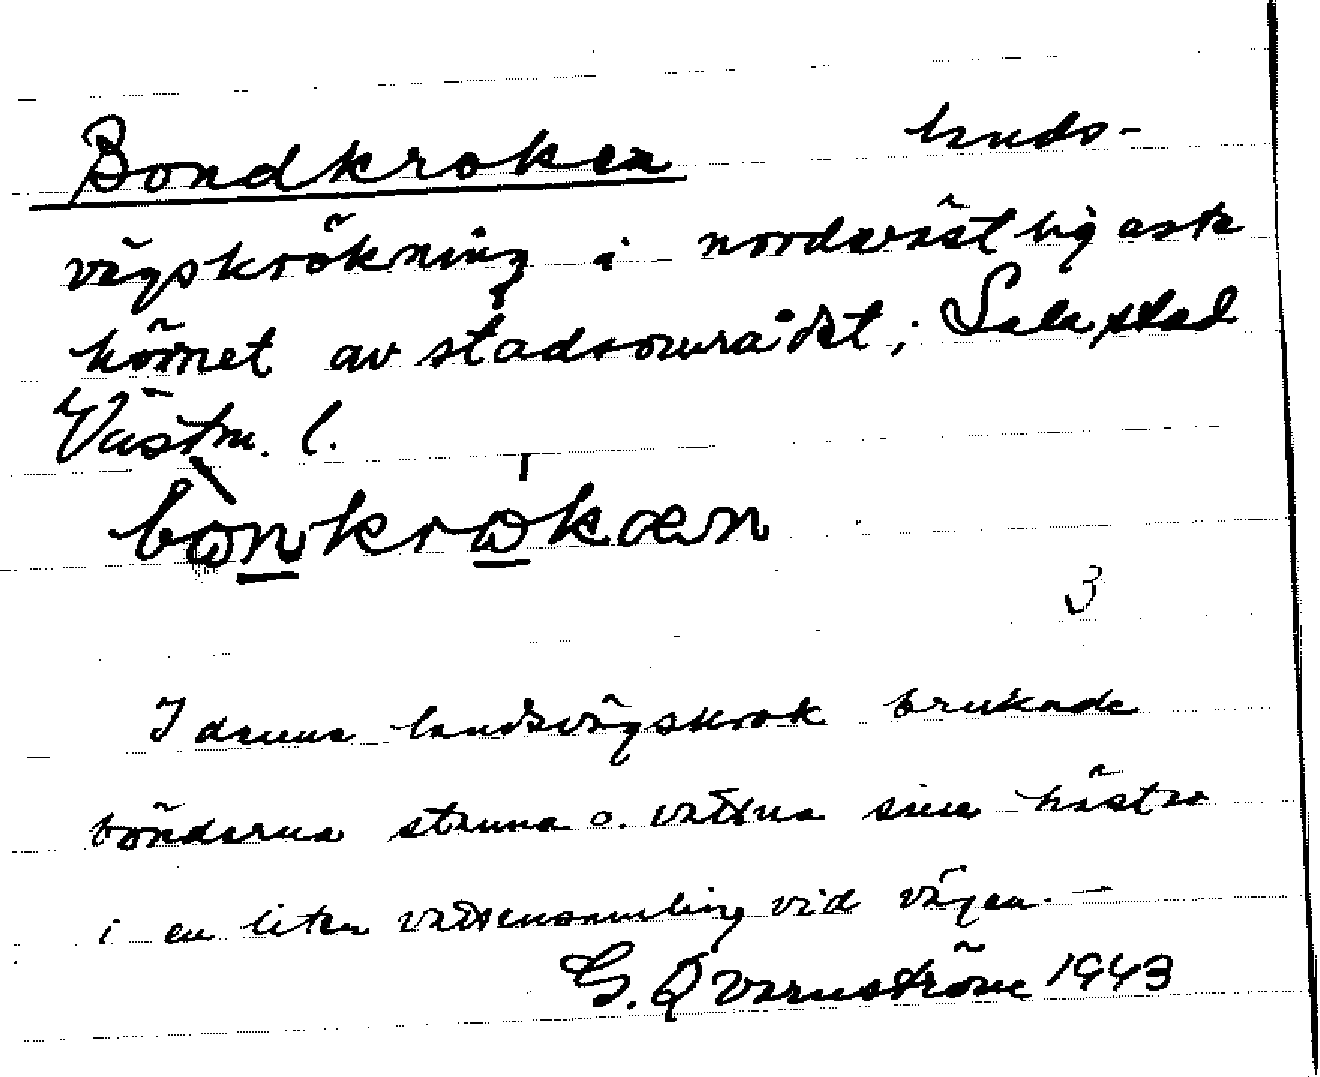 Bondkroken lands-
vägskrökning i nordvästligaste
hörnet av stadsområdet; Sala stad
Västm. l.
bònkrò̩kæn
3
I denna landsvägskrok brukade
bönderna stanna o. vattna sina hästar
i en liten vattensamling vid vägen. —
G. Qvarnström 1943